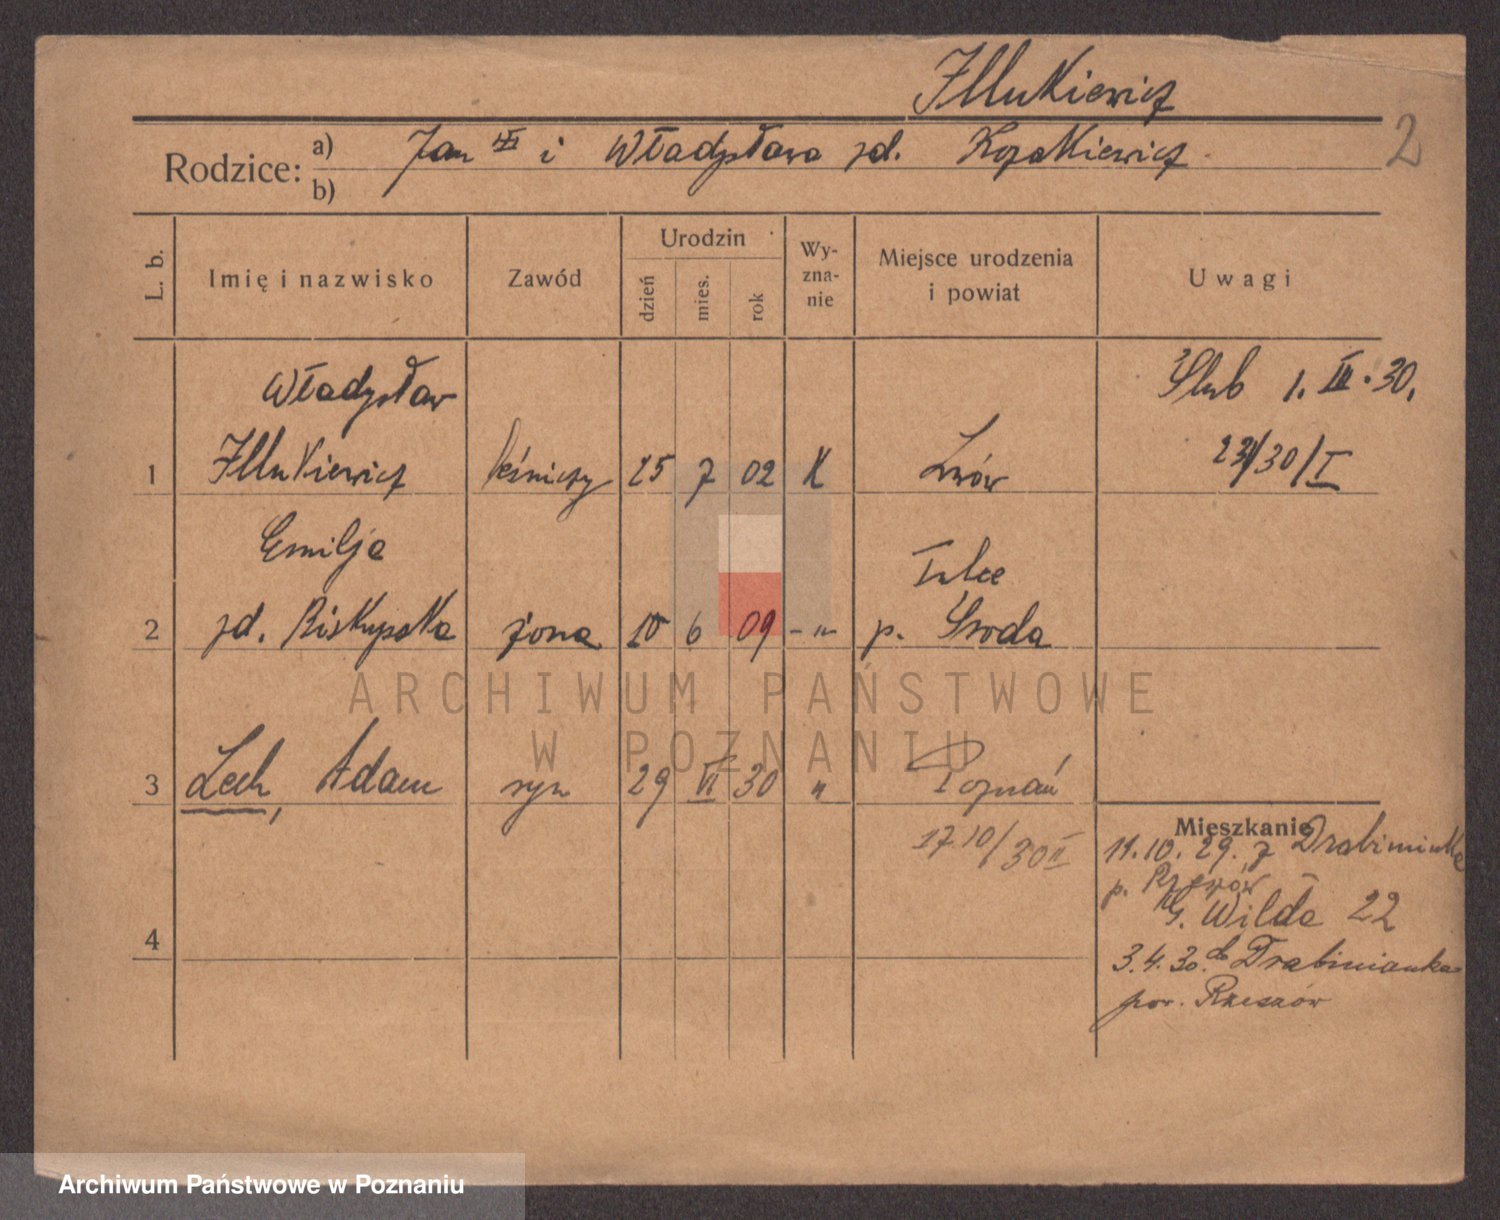 Illukiewicz
2
Rodzice: a) Jan i Władysława zd. Kozakiewicz
b)
L. b. Imię i nazwisko Zawód Urodzin dzień mies. rok Wy-zna-nie Miejsce urodzenia i powiat Uwagi
Władysław Ślub 1. III. 30.
1 Illukiewicz leśniczy 25 7 02 K Lwów /30/I
Emilja Tulce
2 zd. Biskupska żona 10 6 09 -"- p. Środa
3 Lech, Adam syn 29 VI 30 " Poznań
17 10/30 II
Mieszkanie
11.10.29. z Drabinianka
p. Rzeszów
G. Wilda 22
4
3.4.30. do Drabinianka
pow. Rzeszów
ARCHIWUM PAŃSTWOWE
W POZNANIU
Archiwum Państwowe w Poznaniu